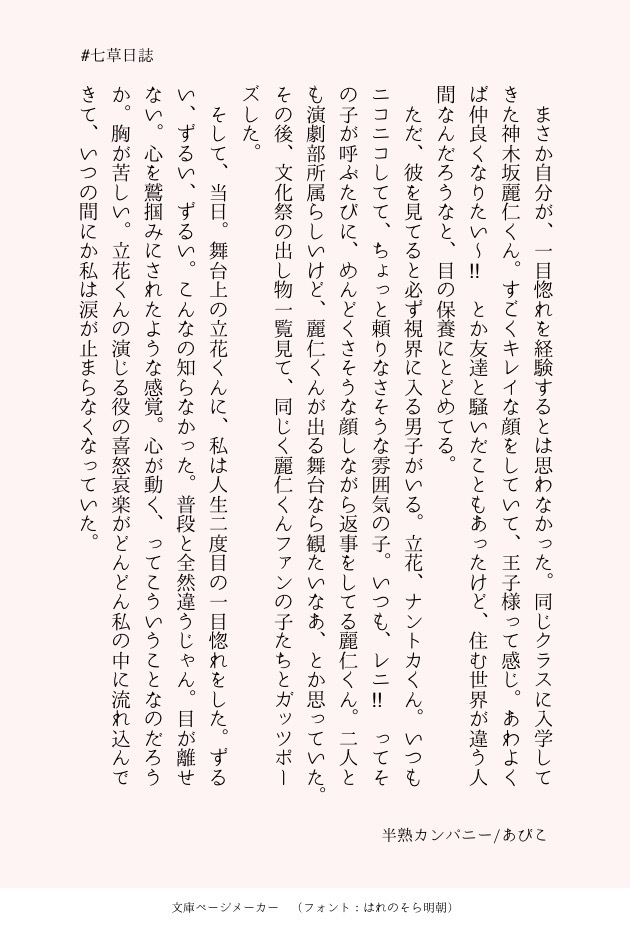 #七草日誌
　まさか自分が、一目惚れを経験するとは思わなかった。同じクラスに入学して
きた神木坂麗仁くん。すごくキレイな顔をしていて、王子様って感じ。あわよく
ば仲良くなりたい～!!　とか友達と騒いだこともあったけど、住む世界が違う人
間なんだろうなと、目の保養にとどめてる。
　ただ、彼を見てると必ず視界に入る男子がいる。立花、ナントカくん。いつも
ニコニコしてて、ちょっと頼りなさそうな雰囲気の子。いつも、レニ!!　ってそ
の子が呼ぶたびに、めんどくさそうな顔しながら返事をしてる麗仁くん。二人と
も演劇部所属らしいけど、麗仁くんが出る舞台なら観たいなあ、とか思っていた。
その後、文化祭の出し物一覧見て、同じく麗仁くんファンの子たちとガッツポー
ズした。
　そして、当日。舞台上の立花くんに、私は人生二度目の一目惚れをした。ずる
い、ずるい、ずるい。こんなの知らなかった。普段と全然違うじゃん。目が離せ
ない。心を鷲掴みにされたような感覚。心が動く、ってこういうことなのだろう
か。胸が苦しい。立花くんの演じる役の喜怒哀楽がどんどん私の中に流れ込んで
きて、いつの間にか私は涙が止まらなくなっていた。
半熟カンパニー/あびこ
文庫ページメーカー　（フォント：はれのそら明朝）